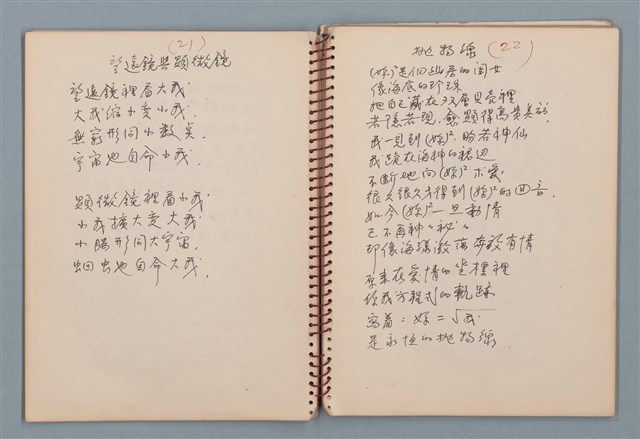 (21)
望遠鏡與顯微鏡
望遠鏡裡看大我
大我縮小變小我
無窮形同小數矣
宇宙也自命小我.
顯微鏡裡看小我
小我擴大變大我
小腸形同大宇宙.
蛔虫也自命大我.
拋物線 (22)
(妳)²是個幽居的閨女
像海底的珍珠
她自己藏在双層貝壳裡
若隱若現, 愈顯得高贵美麗
我一見到(妳)², 盼若神仙
我跪在海神的裙边
不断地向(妳)²求爱
很久很久才得到(妳)²的回音.
如今(妳)²一旦動情
已不再种"祕"
却像海濤激荡奔放有情
原來在爱情的坐標裡
你我方程式的軌跡
寫着：妳=√我
是永恒的拋物線.